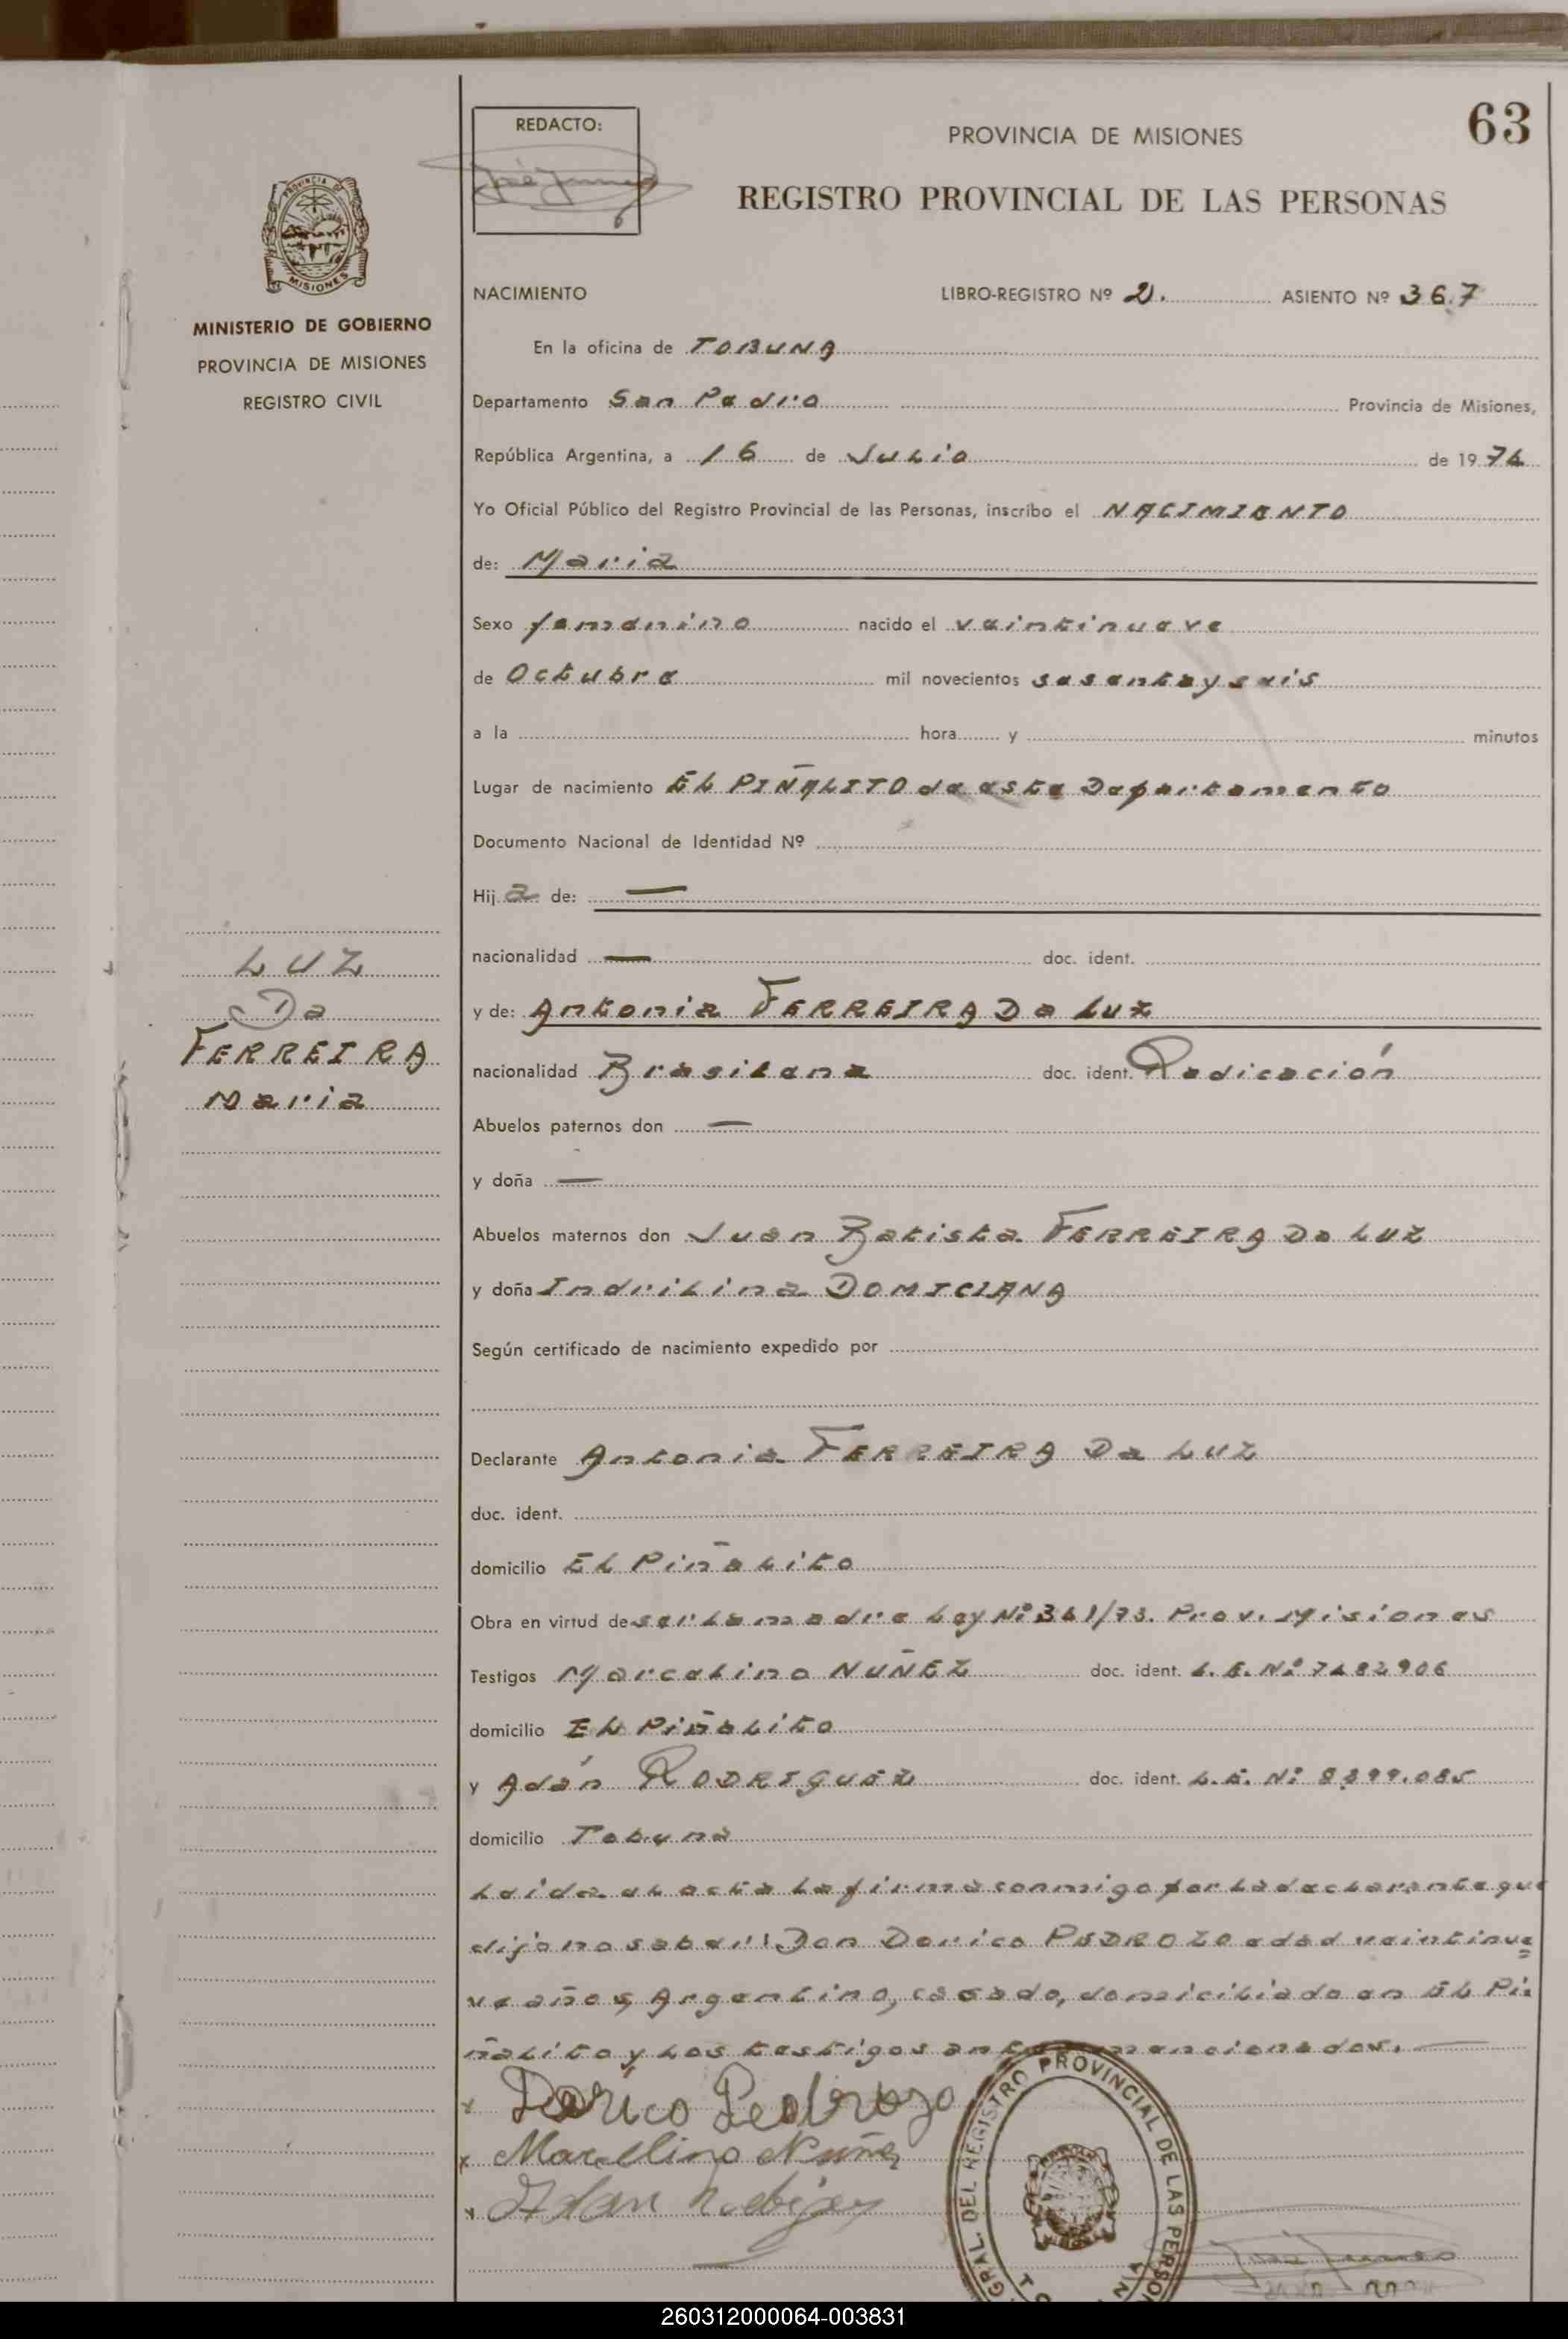 63
REDACTO:
PROVINCIA DE MISIONES
REGISTRO PROVINCIAL DE LAS PERSONAS
PROVINCIA DE
MISIONES
MINISTERIO DE GOBIERNO
PROVINCIA DE MISIONES
REGISTRO CIVIL
NACIMIENTO LIBRO-REGISTRO Nº 2. ASIENTO Nº 367
En la oficina de TOBUNA
Departamento San Pedro Provincia de Misiones,
República Argentina, a 16 de Julio de 1974
Yo Oficial Público del Registro Provincial de las Personas, inscribo el NACIMIENTO
de: Maria
Sexo femenino nacido el veintinueve
de Octubre mil novecientos sesentayseis
a la hora y minutos
Lugar de nacimiento EL PIÑALITO de este Departamento
Documento Nacional de Identidad Nº
Hija de: —
nacionalidad — doc. ident.
y de: Antonia FERREIRA Da Luz
nacionalidad Brasilena doc. ident. Radicación
LUZ
Da
FERREIRA
Maria
Abuelos paternos don —
y doña —
Abuelos maternos don Juan Batista FERREIRA Da LUZ
y doña Indrilina DOMICIANA
Según certificado de nacimiento expedido por
Declarante Antonia FERREIRA Da LUZ
doc. ident.
domicilio EL Piñalito
Obra en virtud de ser la madre Ley Nº 361/73. Prov. Misiones
Testigos Marcelino NUÑEZ doc. ident. L.E. Nº 7482906
domicilio EL Piñalito
y Adán RODRIGUEZ doc. ident. L.E. Nº 8399.085
domicilio Tobuna
Leida el acta la firma conmigo por la declarante que
dijo no saber: Don Dorico PEDROZO edad veintinue=
ve años, Argentino, casado, domiciliado en EL Pi=
ñalito y los testigos antes mencionados.
x Dorico Pedrozo
x Marcelino Nuñez
x Adan Rodriguez
GRAL. DEL REGISTRO PROVINCIAL DE LAS PERSON
260312000064-003831